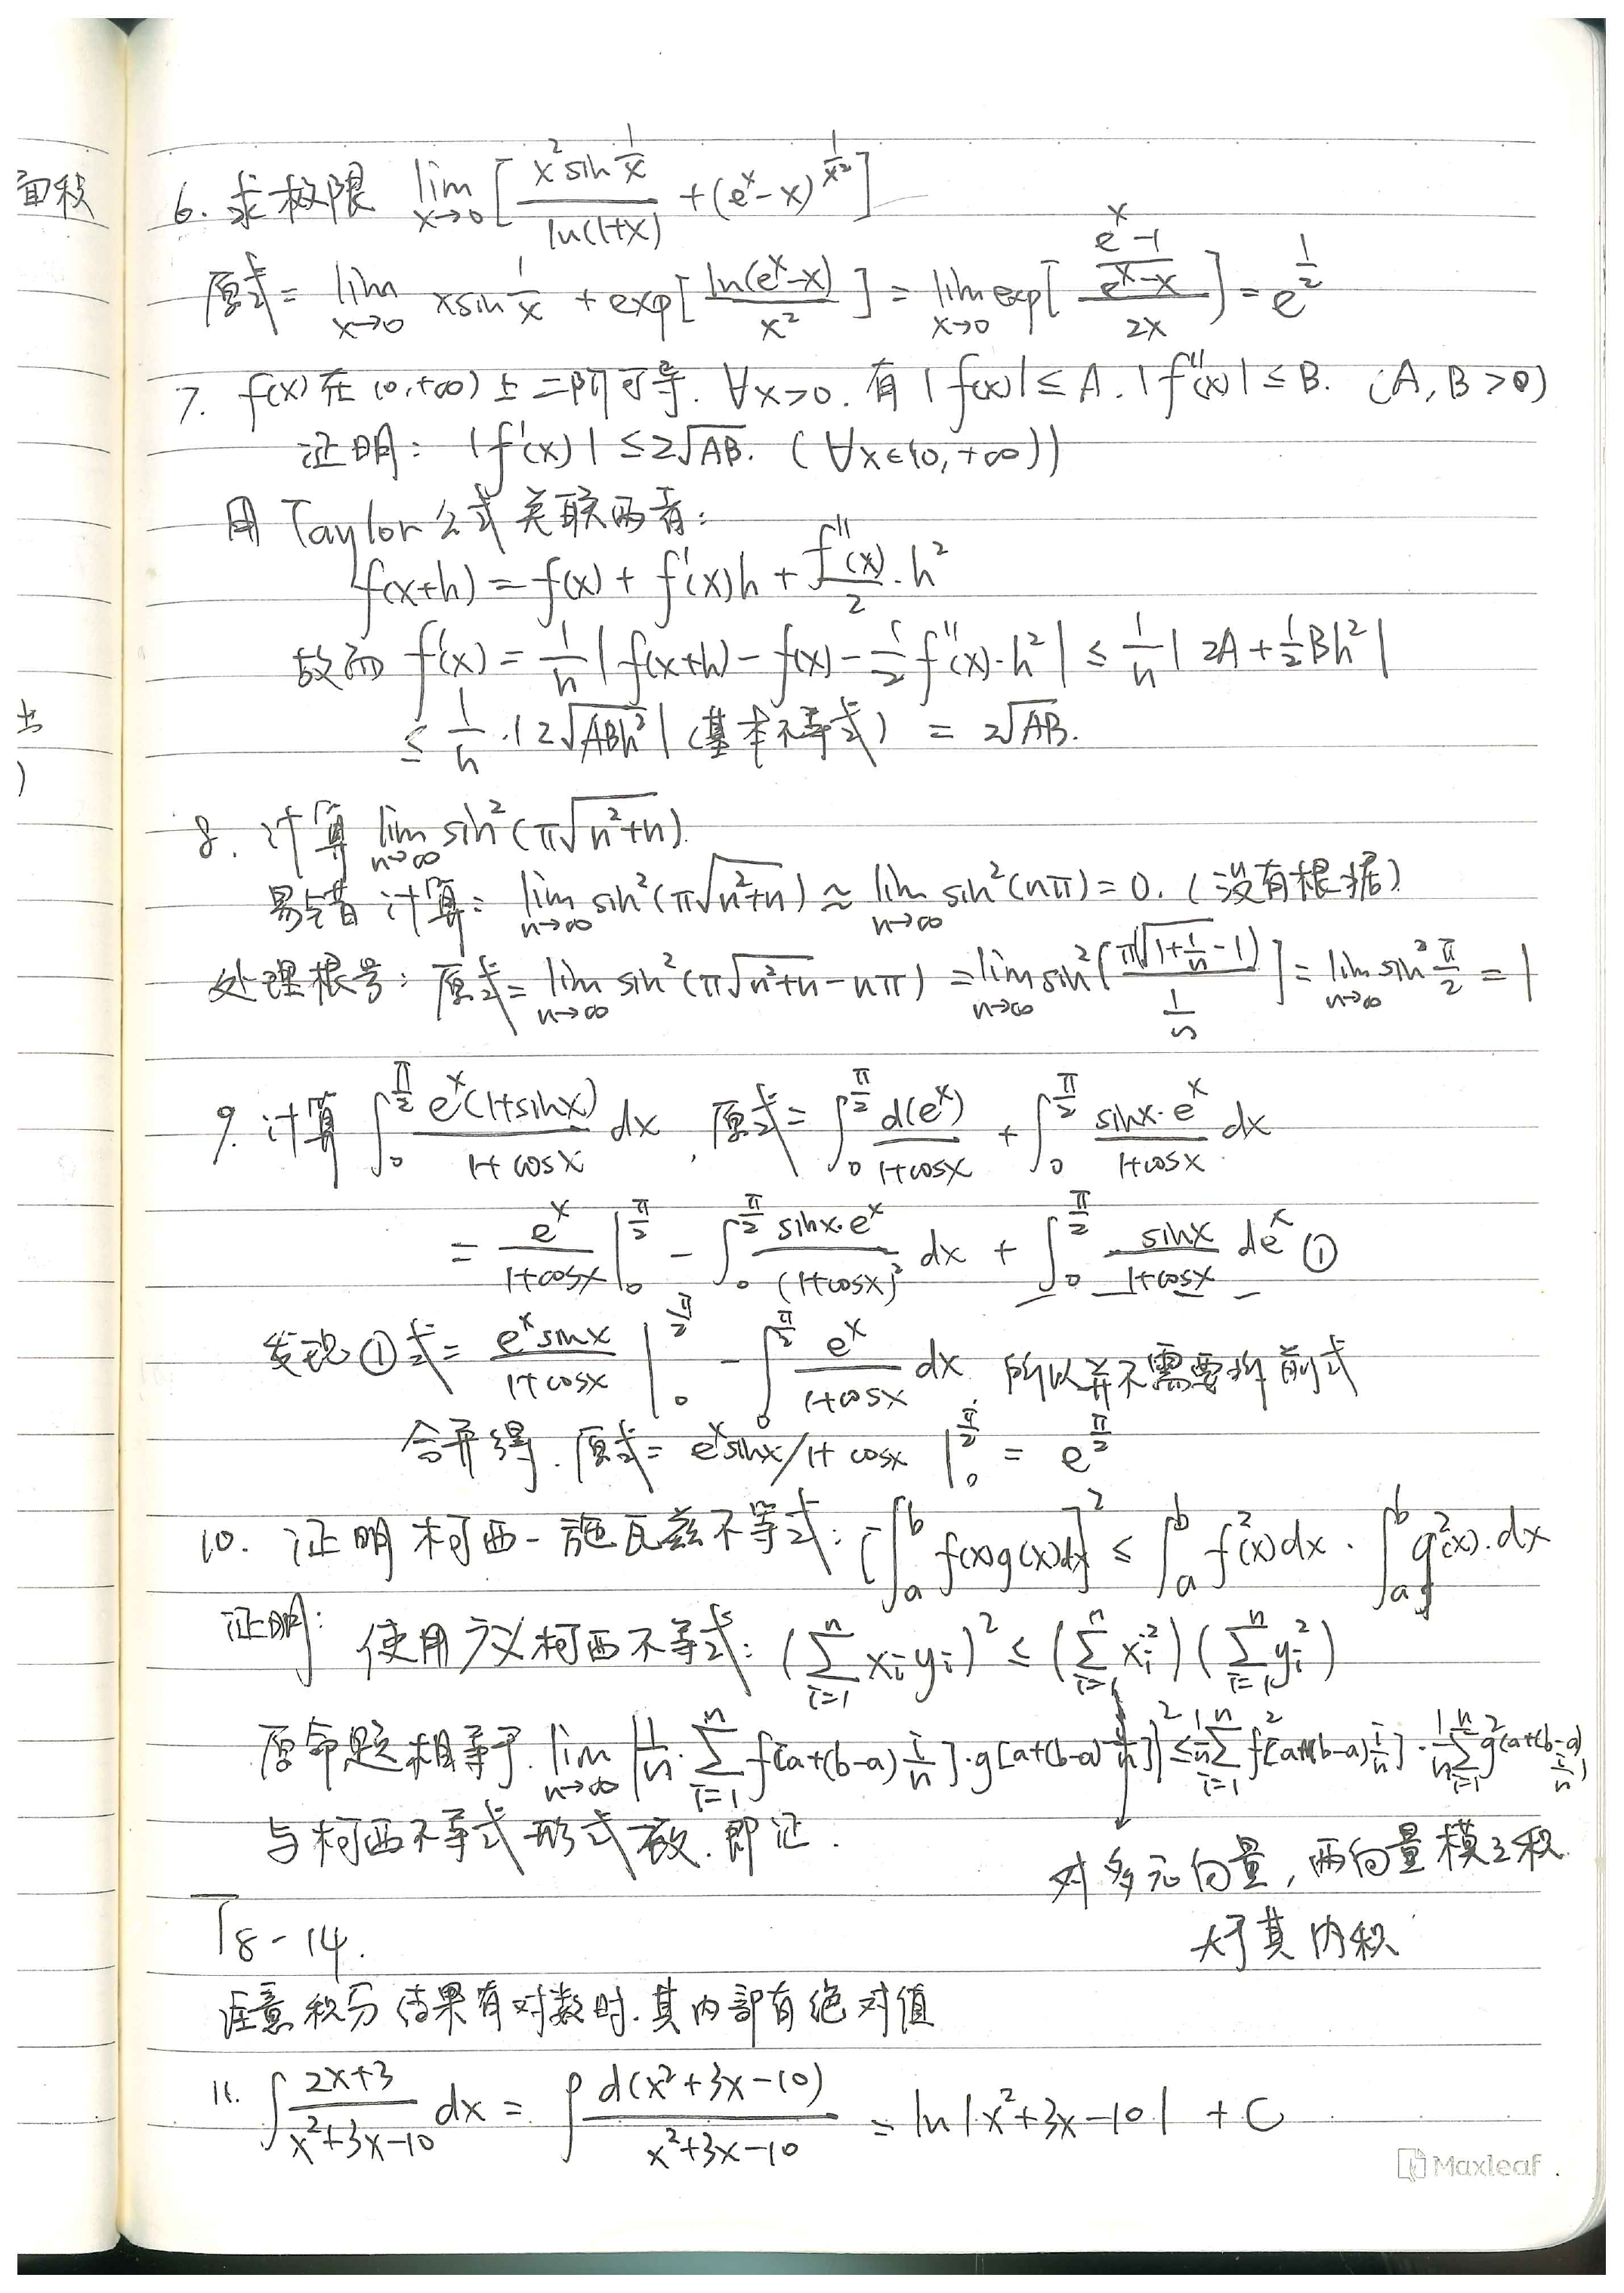 面积
6. 求极限 lim_{x→0} [ x² sin(1/x) / ln(1+x) + (e^x - x)^{1/x²} ]
原式 = lim_{x→0} x sin(1/x) + exp[ ln(e^x - x) / x² ] = lim_{x→0} exp[ ((e^x - 1)/(e^x - x)) / 2x ] = e^{1/2}
7. f(x)在(0,+∞)上二阶可导. ∀x>0. 有 |f(x)| ≤ A. |f''(x)| ≤ B. (A, B > 0)
证明: |f'(x)| ≤ 2√AB. (∀x∈(0,+∞))
用Taylor公式关联两者:
f(x+h) = f(x) + f'(x)h + f''(x)/2 · h²
故而 f'(x) = 1/h | f(x+h) - f(x) - 1/2 f''(x)·h² | ≤ 1/h | 2A + 1/2 Bh² |
≤ 1/h · | 2√(ABh²) | (基本不等式) = 2√AB.
8. 计算 lim_{n→∞} sin²(π√(n²+n)).
易错计算: lim_{n→∞} sin²(π√(n²+n)) ≈ lim_{n→∞} sin²(nπ) = 0. (没有根据)
处理根号: 原式 = lim_{n→∞} sin²(π√(n²+n) - nπ) = lim_{n→∞} sin²[ π(√(1+1/n) - 1) / (1/n) ] = lim_{n→∞} sin² π/2 = 1
9. 计算 ∫_0^{π/2} e^x(1+sinx)/(1+cosx) dx, 原式 = ∫_0^{π/2} d(e^x)/(1+cosx) + ∫_0^{π/2} sinx·e^x/(1+cosx) dx
= e^x/(1+cosx) |_0^{π/2} - ∫_0^{π/2} sinx·e^x/(1+cosx)² dx + ∫_0^{π/2} sinx/(1+cosx) de^x ①
发现①式 = e^x sinx/(1+cosx) |_0^{π/2} - ∫_0^{π/2} e^x/(1+cosx) dx. 所以并不需要拆前式
合并得. 原式 = e^x sinx/1+cosx |_0^{π/2} = e^{π/2}
10. 证明柯西-施瓦兹不等式: [∫_a^b f(x)g(x)dx]² ≤ ∫_a^b f²(x)dx · ∫_a^b g²(x).dx
证明: 使用广义柯西不等式: (Σ_{i=1}^n x_i y_i)² ≤ (Σ_{i=1}^n x_i²)(Σ_{i=1}^n y_i²)
原命题相等于. lim_{n→∞} [1/n · Σ_{i=1}^n f[a+(b-a)i/n]·g[a+(b-a)i/n]]² ≤ 1/n Σ_{i=1}^n f²[a+(b-a)i/n] · 1/n Σ_{i=1}^n g²(a+(b-a)i/n)
与柯西不等式形式一致. 即证.
对多元向量, 两向量模之积
大于其内积
T8-14.
注意积分结果有对数时. 其内部有绝对值
11. ∫ (2x+3)/(x²+3x-10) dx = ∫ d(x²+3x-10)/(x²+3x-10) = ln|x²+3x-10| + C
Maxleaf